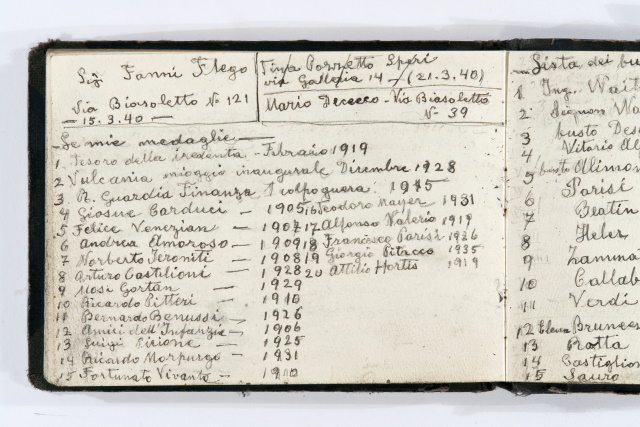 Sig Fanni Frego
Via Biasoletto No 121
— 15.3.40 —
Tina Pozzetto Speri
via Gallesia 14 — (21.3.40)
Mario Dececco - Via Biasoletto
No 39
Le mie medaglie —
1 Tesoro della irredenta - Febraio 1919
2 Vulcania viaggio inaugurale Dicembre 1928
3 R. Guardia Finanza I colpo guerra: 1915
4 Giosue Carduci — 1905
5 Felice Venezian — 1907
6 Andrea Amoroso — 1909
7 Norberto Jeroniti — 1908
8 Arturo Castilioni — 1928
9 Mosi Gortan — 1929
10 Ricardo Pitteri — 1910
11 Bernardo Benussi — 1926
12 Amici dell'Infanzia — 1906
13 Luigi Pirione — 1925
14 Ricardo Morpurgo — 1931
15 Fortunato Vivante — 1910
16 Teodoro Mayer 1931
17 Alfonso Valerio 1919
18 Francesco Parisi 1926
19 Giorgio Pitacco 1935
20 Attilio Hortis 1919
Lista dei bu
1 Ing. Wait
2 Sigmon Wa
3 busto Des
4 Vitorio Al
5 busto Alimon
6 Parisi
7 Beatin
8 Heler
9 Zamma
10 Callab
11 Verdi
12 Elena Brunes
13 Rotta
14 Castiglion
15 Sauro